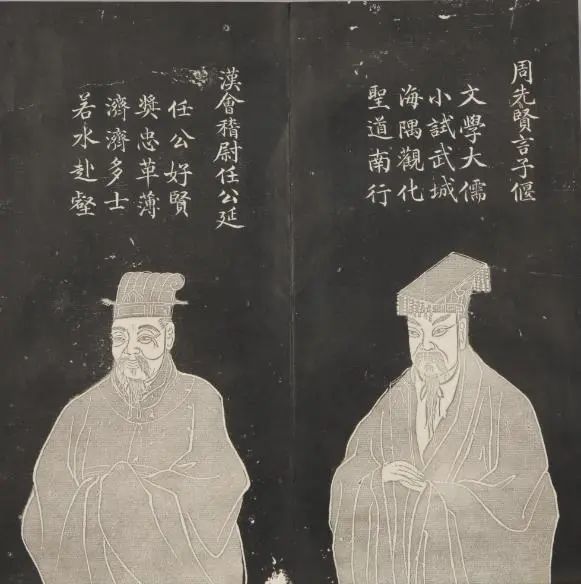 周先賢言子偃
文學大儒
小試武城
海隅觀化
聖道南行
漢會稽尉任公延
任公好賢
奬忠革薄
濟濟多士
若水赴壑